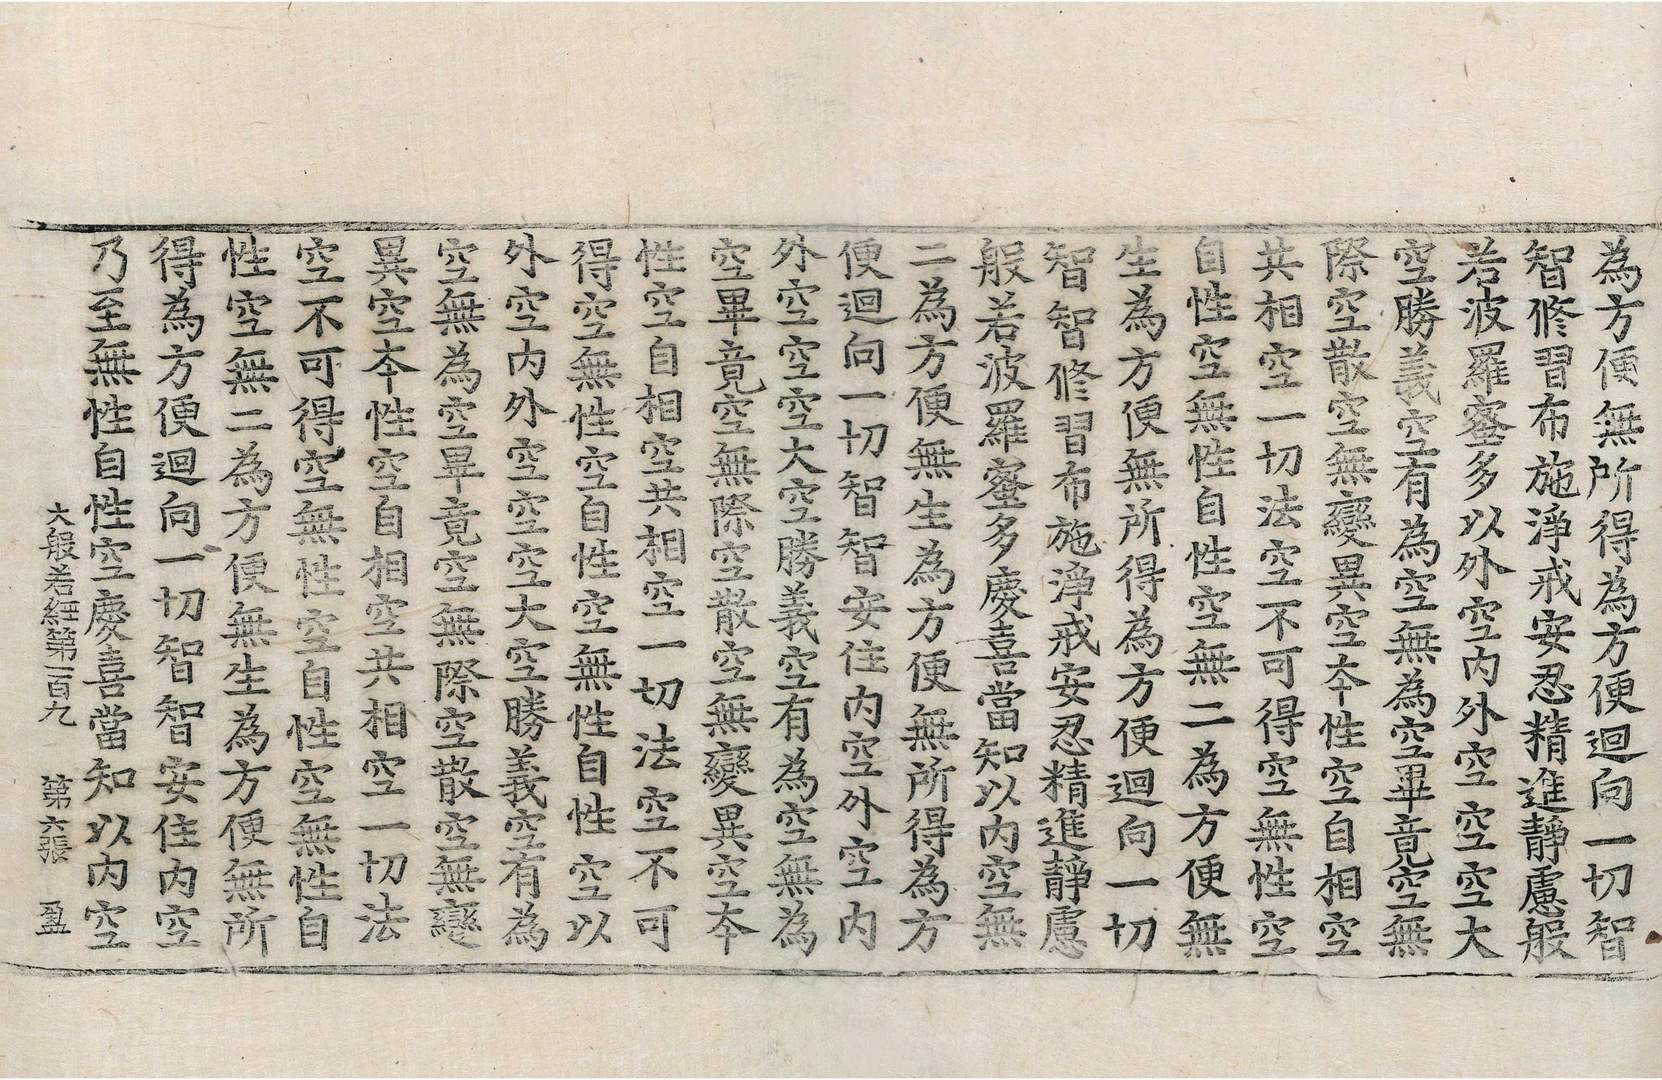 為方便無所得為方便迴向一切智
智修習布施淨戒安忍精進靜慮般
若波羅蜜多以外空内外空空空大
空勝義空有為空無為空畢竟空無
際空散空無變異空夲性空自相空
共相空一切法空不可得空無性空
自性空無性自性空無二為方便無
生為方便無所得為方便迴向一切
智智修習布施淨戒安忍精進靜慮
般若波羅蜜多慶喜當知以内空無
二為方便無生為方便無所得為方
便迴向一切智智安住内空外空内
外空空空大空勝義空有為空無為
空畢竟空無際空散空無變異空夲
性空自相空共相空一切法空不可
得空無性空自性空無性自性空以
外空内外空空空大空勝義空有為
空無為空畢竟空無際空散空無變
異空夲性空自相空共相空一切法
空不可得空無性空自性空無性自
性空無二為方便無生為方便無所
得為方便迴向一切智智安住内空
乃至無性自性空慶喜當知以内空
大般若經第一百九 第六張 盈